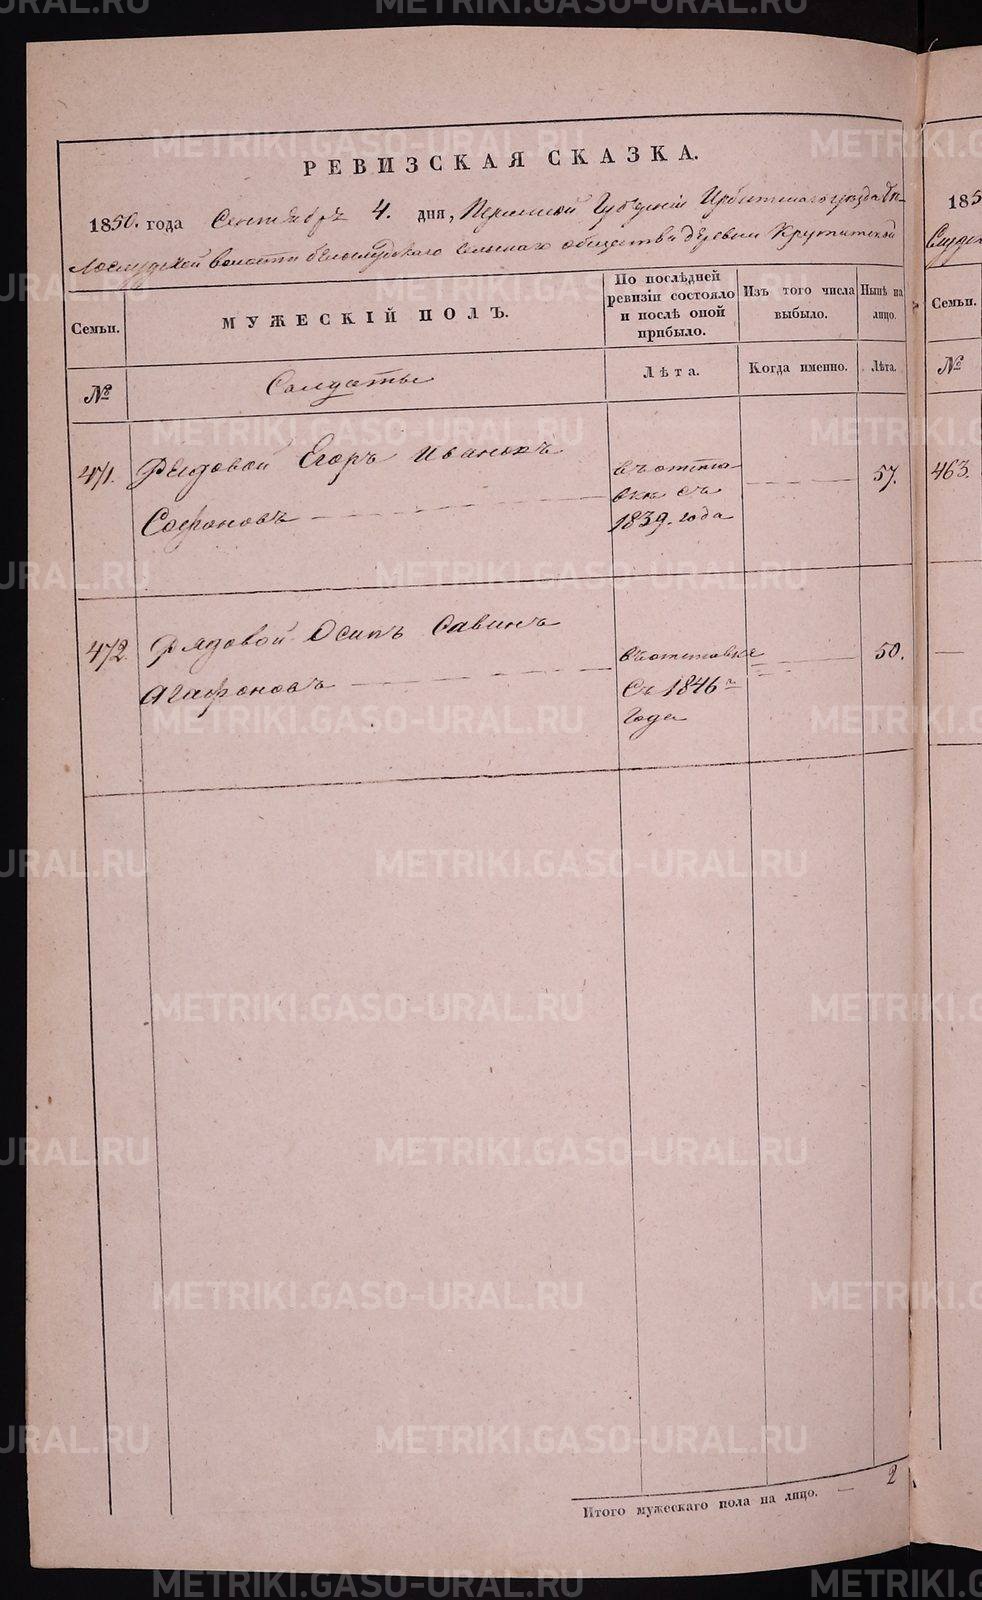 РЕВИЗСКАЯ СКАЗКА.
1850. года Сентября 4. дня, Пермской Губернии Ирбитскаго уезда Бе-
лослудской волости белослудскаго сельскаго общества деревни Крутихинской
Семьи.
МУЖЕСКІЙ ПОЛЪ.
По послѣдней ревизіи состояло и послѣ оной прибыло.
Изъ того числа выбыло.
Нынѣ на лицо.
№
Солдаты
Лѣта.
Когда именно.
Лѣта.
471.
Рядовой Егоръ Ивановъ
Софроновъ
въ отста
вкѣ съ
1839. года
57.
472.
Рядовой Осипъ Савинъ
Агафоновъ
въ отставке
Съ 1846 г
года
50.
Итого мужескаго пола на лицо. 2
185
Слудск
Семьи.
№
463.
METRIKI.GASO-URAL.RU